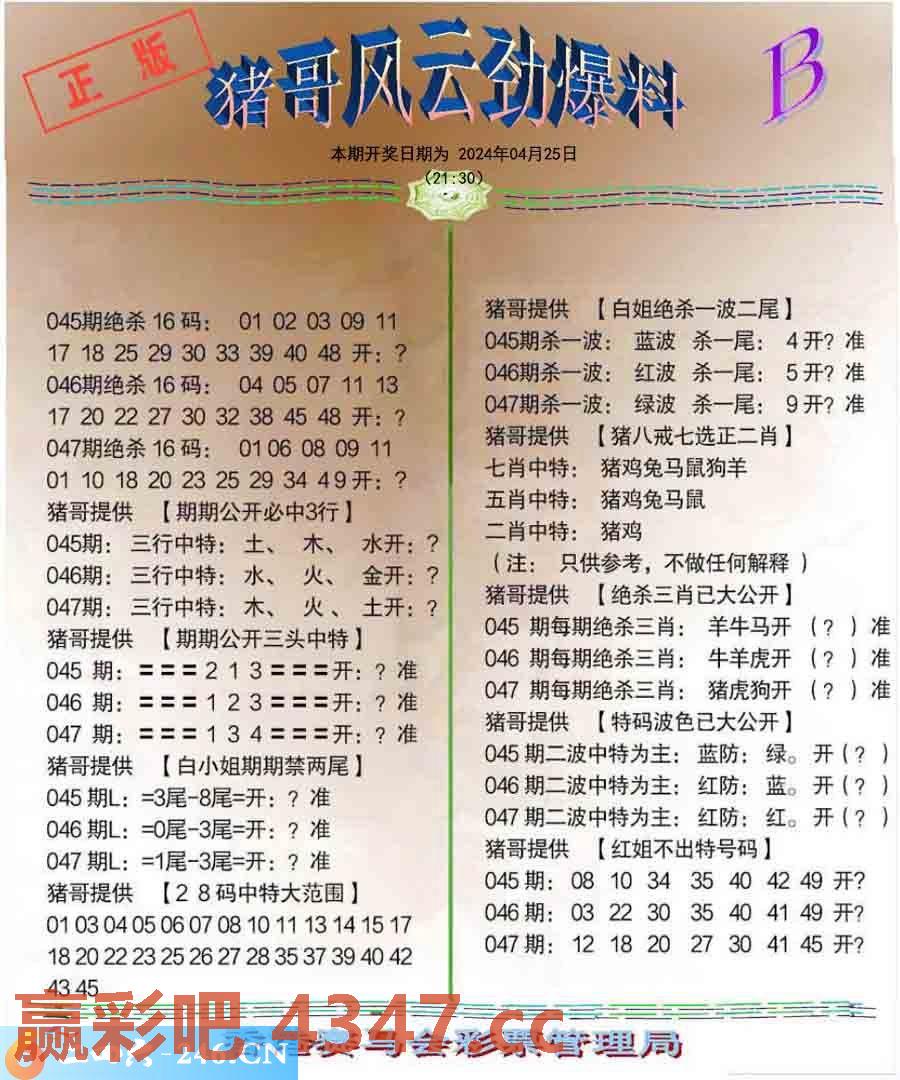 正版
猪哥风云劲爆料
B
本期开奖日期为 2024年04月25日
(21:30)
045期绝杀 16 码： 01 02 03 09 11
17 18 25 29 30 33 39 40 48 开：?
046期绝杀 16 码： 04 05 07 11 13
17 20 22 27 30 32 38 45 48 开：?
047期绝杀 16 码： 01 06 08 09 11
01 10 18 20 23 25 29 34 49 开：?
猪哥提供 【期期公开必中3行】
045期： 三行中特： 土、 木、 水开：?
046期： 三行中特： 水、 火、 金开：?
047期： 三行中特： 木、 火、 土开：?
猪哥提供 【期期公开三头中特】
045 期：＝＝＝2 1 3＝＝＝开：? 准
046 期：＝＝＝1 2 3＝＝＝开：? 准
047 期：＝＝＝1 3 4＝＝＝开：? 准
猪哥提供 【白小姐期期禁两尾】
045 期L：=3尾-8尾=开：? 准
046 期L：=0尾-3尾=开：? 准
047 期L：=1尾-3尾=开：? 准
猪哥提供 【２８码中特大范围】
01 03 04 05 06 07 08 10 11 13 14 15 17
18 20 22 23 25 26 27 28 35 37 39 40 42
43 45
猪哥提供 【白姐绝杀一波二尾】
045期杀一波： 蓝波 杀一尾： 4 开? 准
046期杀一波： 红波 杀一尾： 5 开? 准
047期杀一波： 绿波 杀一尾： 9 开? 准
猪哥提供 【猪八戒七选正二肖】
七肖中特： 猪鸡兔马鼠狗羊
五肖中特： 猪鸡兔马鼠
二肖中特： 猪鸡
（注： 只供参考，不做任何解释 ）
猪哥提供 【绝杀三肖已大公开】
045 期每期绝杀三肖： 羊牛马开 （？ ）准
046 期每期绝杀三肖： 牛羊虎开 （？ ）准
047 期每期绝杀三肖： 猪虎狗开 （？ ）准
猪哥提供 【特码波色已大公开】
045 期二波中特为主： 蓝防： 绿。 开（？ ）
046 期二波中特为主： 红防： 蓝。 开（？ ）
047 期二波中特为主： 红防： 红。 开（？ ）
猪哥提供 【红姐不出特号码】
045 期： 08 10 34 35 40 42 49 开?
046 期： 03 22 30 35 40 41 49 开?
047 期： 12 18 20 27 30 41 45 开?
赢彩吧 4347.cc
赛马会彩票管理局